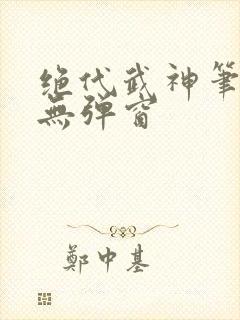 绝代武神筆
無弹窗
鄭中基